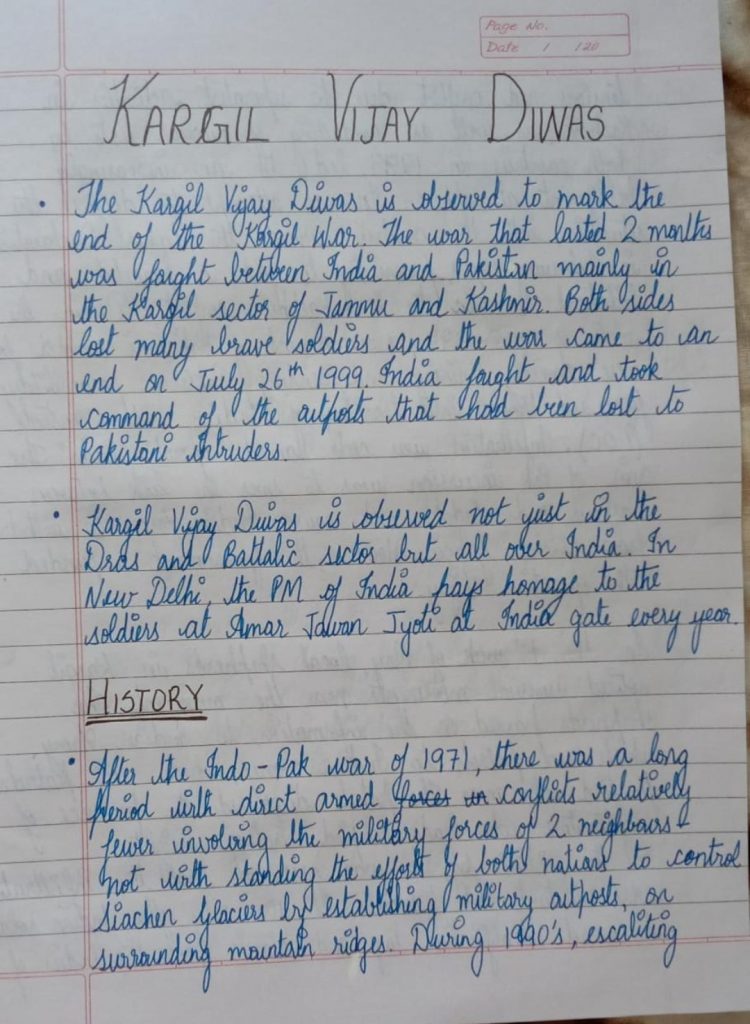 Page No.
Date / /20
KARGIL VIJAY DIWAS
• The Kargil Vijay Diwas is observed to mark the
end of the Kargil War. The war that lasted 2 months
was fought between India and Pakistan mainly in
the Kargil sector of Jammu and Kashmir. Both sides
lost many brave soldiers and the war came to an
end on July 26th 1999. India fought and took
command of the outposts that had been lost to
Pakistani intruders.
• Kargil Vijay Diwas is observed not just in the
Dras and Battalic sector but all over India. In
New Delhi, the PM of India pays homage to the
soldiers at Amar Jawan Jyoti at India gate every year.
HISTORY
• After the Indo-Pak war of 1971, there was a long
period with direct armed forces in conflicts relatively
fewer involving the military forces of 2 neighbours-
not with standing the efforts of both nations to control
Siachen Glaciers by establishing military outposts, on
surrounding mountain ridges. During 1990's, escaliting